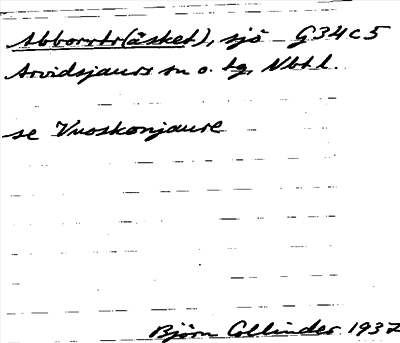 Abborrtr(äsket), sjö G34c5
Arvidsjaurs sn o. tg, Nbtl.
se Vuoskonjaure
Björn Collinder 1937